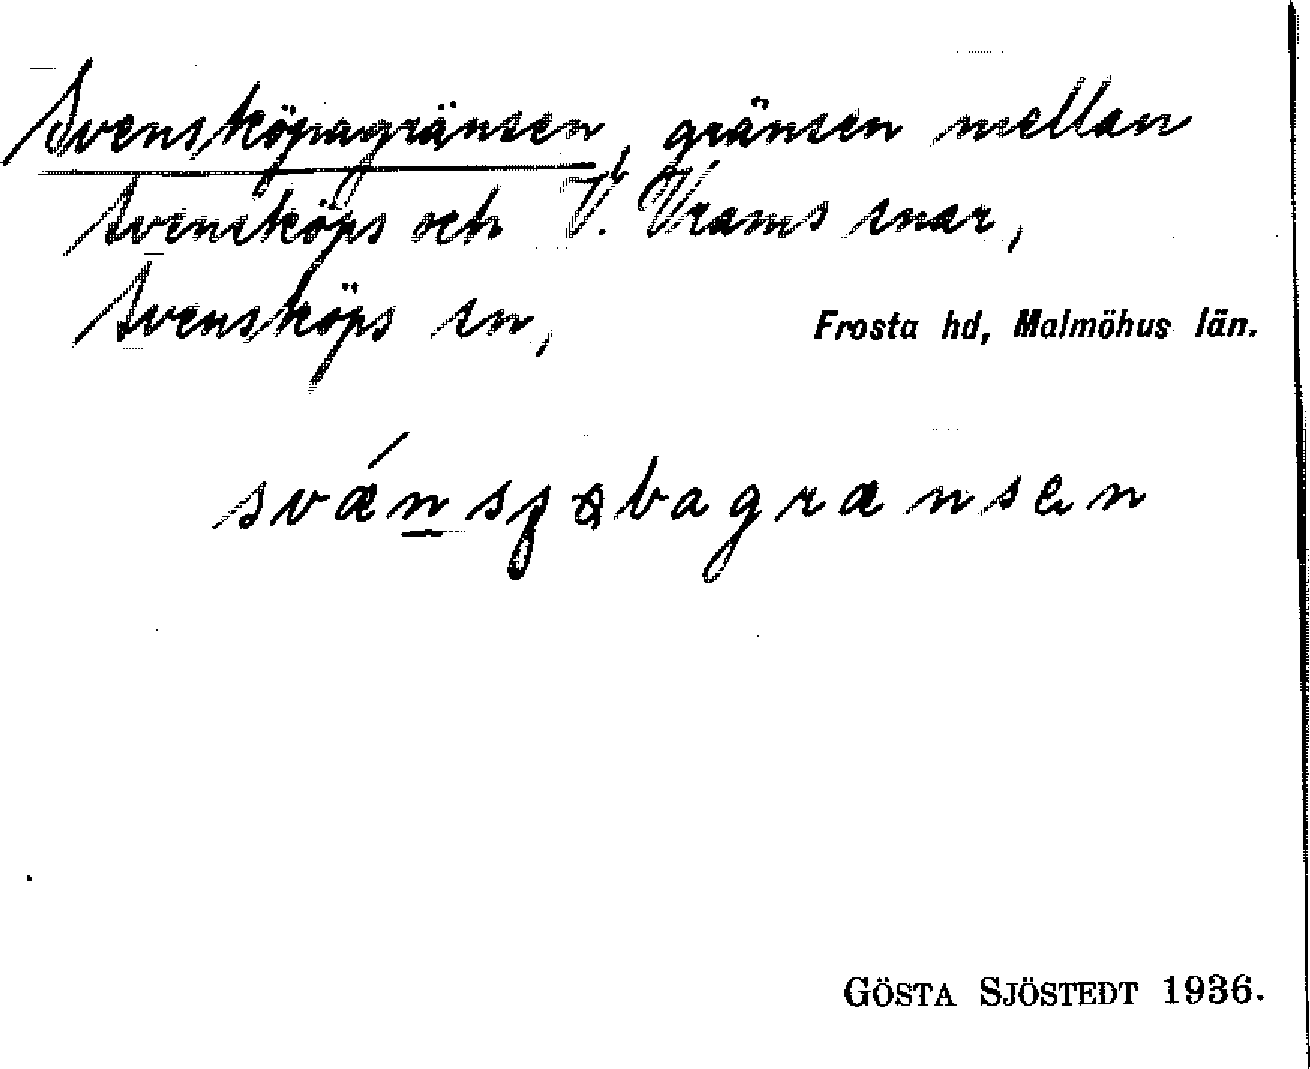 Svensköpagränsen, gränsen mellan
Svensköps och V. Vrams snar,
Svensköps sn, Frosta hd, Malmöhus län.
svǽnsɟøbagrænsen
GÖSTA SJÖSTEDT 1936.